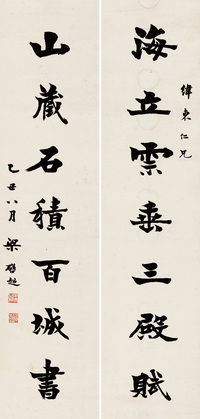 海立雲垂三殿賦
緯東仁兄
山藏石積百城書
乙丑八月 梁啟超